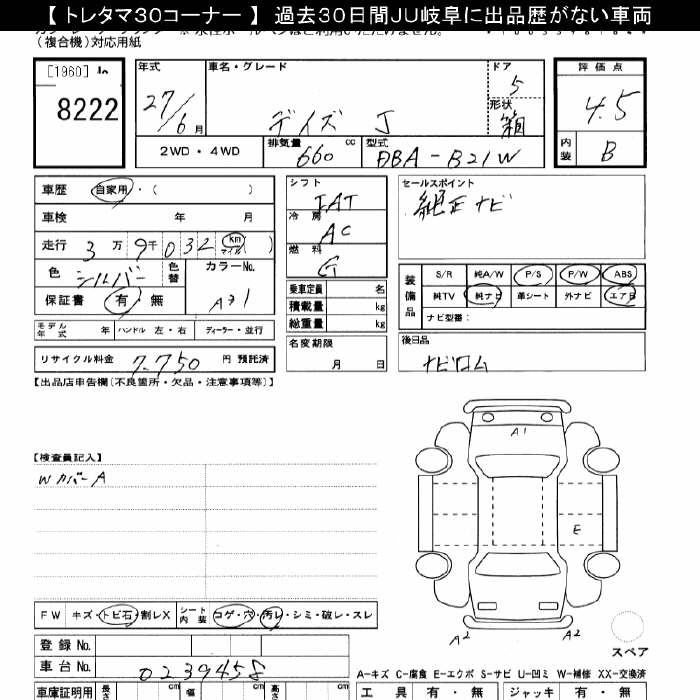 【 トレタマ３０コーナー 】 過去３０日間ＪＵ岐阜に出品歴がない車両
（複合機）対応用紙
[1960]
8222
年式
27/6月
車名・グレード
デイズ J
ドア
5
形状
箱
評価点
4.5
内装
B
2WD・4WD
排気量 660 cc
型式 DBA-B21W
車歴 自家用・（ ）
車検 年 月
走行 3万 9千 032 (km マイル)
色 シルバー 色替
カラーNo.
保証書 有・無
モデル年式 年 ハンドル 左・右 ディーラー・並行
リサイクル料金 7,750 円 預託済
シフト
IAT
冷房
AC
燃料
G
乗車定員 名
積載量 kg
総重量 kg
名変期限
月 日
セールスポイント
純正ナビ
装備品
S/R 純A/W P/S P/W ABS
純TV 純ナビ 革シート 外ナビ エアB
ナビ型番：
後日品
ナビロム
【出品店申告欄（不良箇所・欠品・注意事項等）】
【検査員記入】
Wカバー A
A1
E
A2 A2
スペア
FW キズ・トビ石・割レX シート内装 コゲ・穴・汚レ・シミ・破レ・スレ
登録 No.
車台 No. 0239458
A-キズ C-腐食 E-エクボ S-サビ U-凹ミ W-補修 XX-交換済
車庫証明用 長さ cm 幅 cm 高さ cm
工具 有・無 ジャッキ 有・無